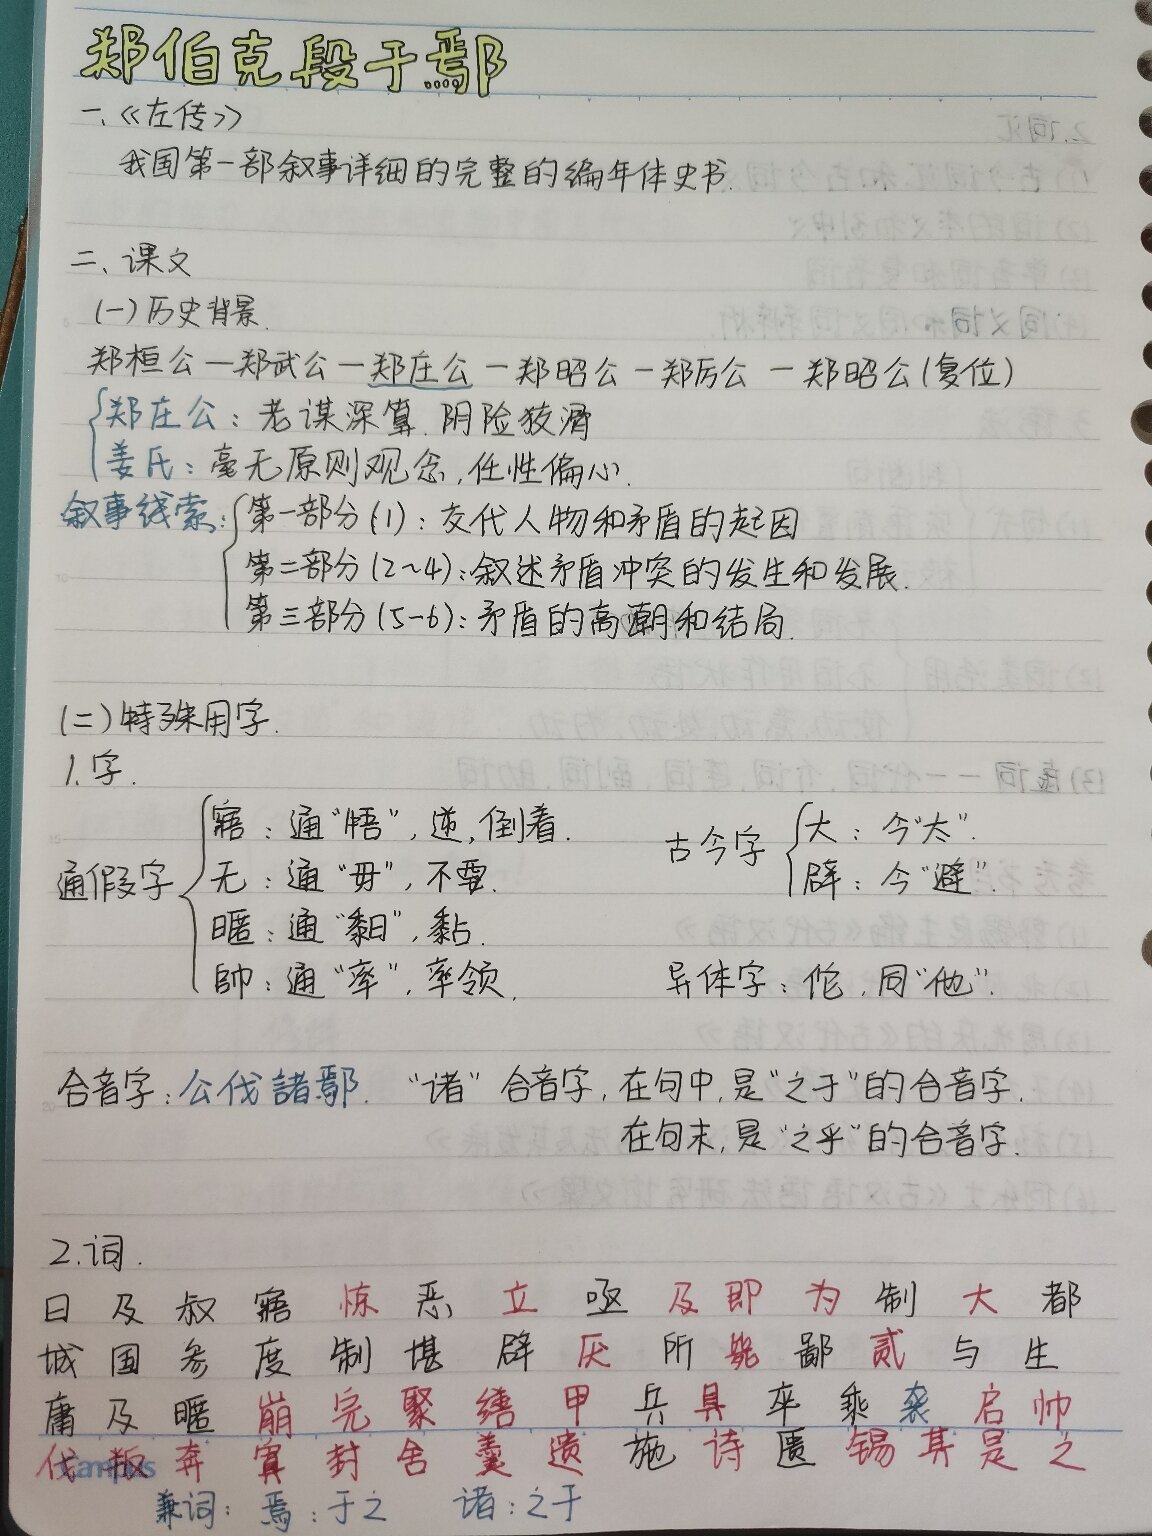 郑伯克段于鄢
一、《左传》
我国第一部叙事详细的完整的编年体史书.
二、课文
(一)历史背景.
郑桓公—郑武公—郑庄公—郑昭公—郑厉公—郑昭公(复位)
郑庄公:老谋深算.阴险狡滑
姜氏:毫无原则观念,任性偏心.
叙事线索:第一部分(1):交代人物和矛盾的起因
第二部分(2~4):叙述矛盾冲突的发生和发展.
第三部分(5-6):矛盾的高潮和结局.
(二)特殊用字.
1.字.
通假字
寤:通“牾”,逆,倒着.
无:通“毋”,不要.
暱:通“䵒”,黏.
帥:通“率”,率领.
古今字
大:今“太”.
辟:今“避”.
异体字:佗,同“他”.
合音字:公伐諸鄢. “诸”合音字,在句中,是“之于”的合音字.
在句末,是“之乎”的合音字.
2.词.
日 及 叔 寤 恡 恶 立 亟 及 即 为 制 大 都
城 国 参 度 制 堪 辟 厌 所 毙 鄙 贰 与 生
庸 及 暱 崩 完 聚 缮 甲 兵 具 卒 乘 袭 启 帅
伐 叛 奔 寘 封 舍 羹 遗 施 诗 匮 锡 其 是 之
兼词: 焉:于之 诸:之于